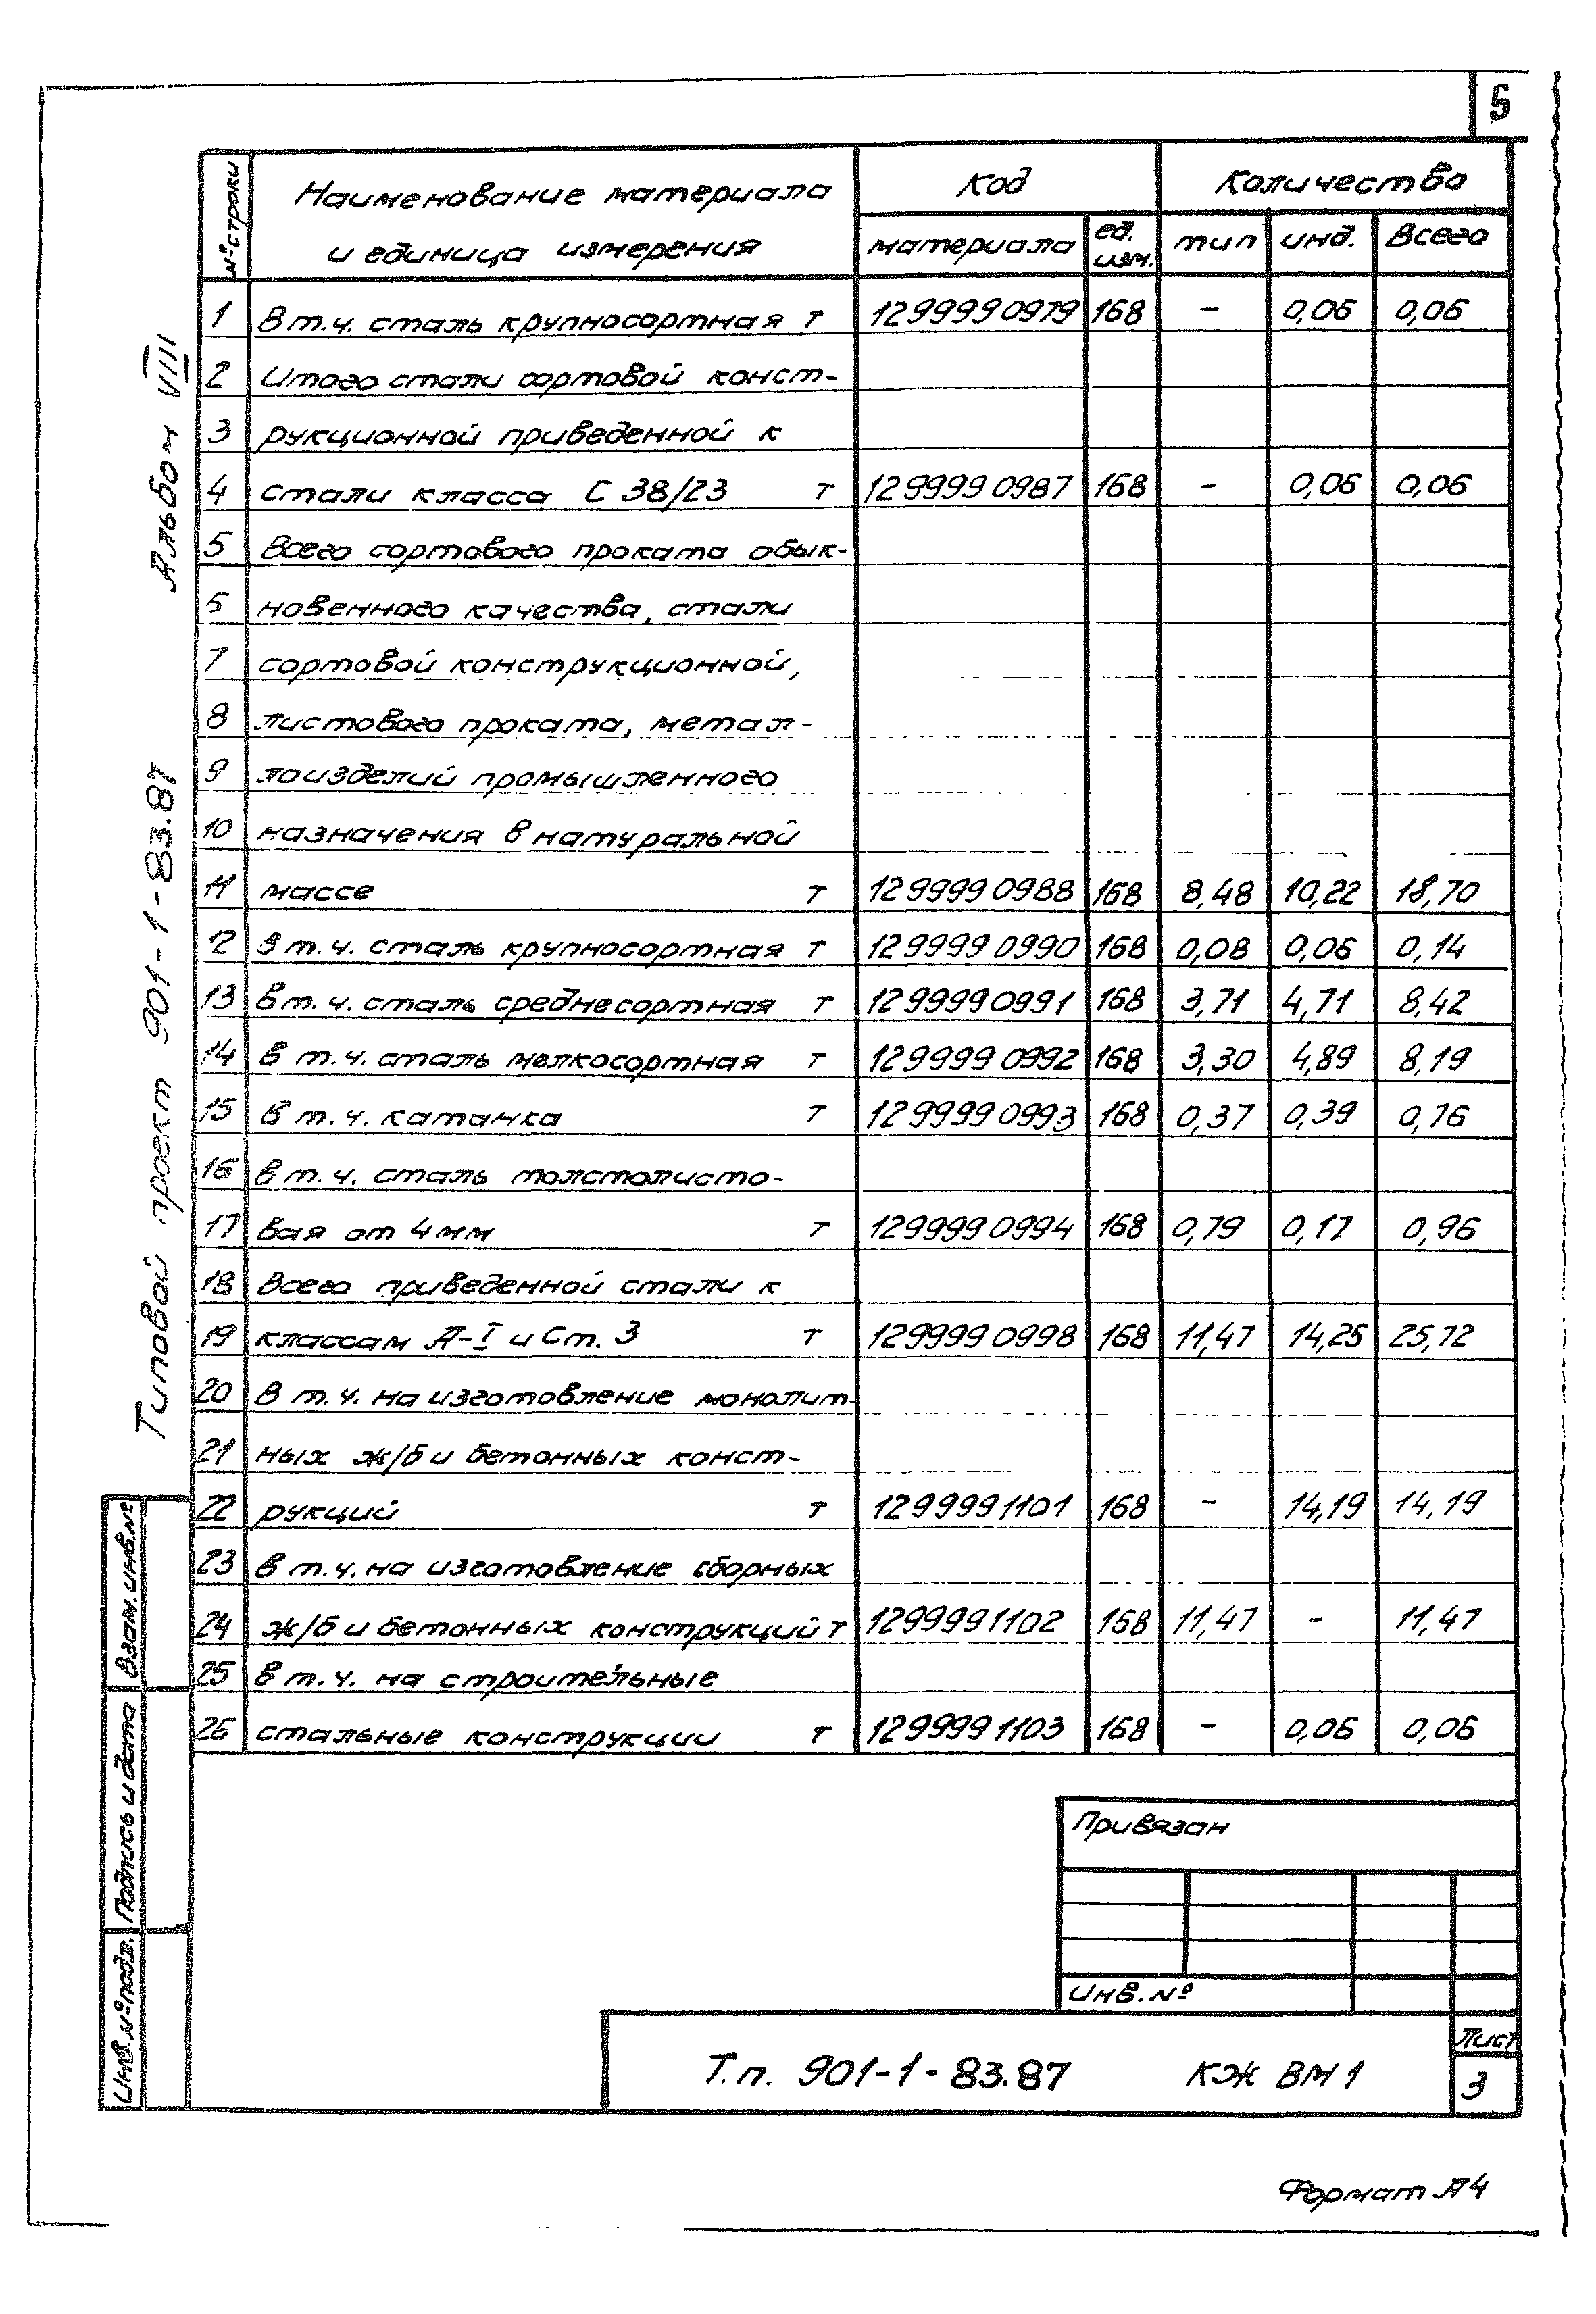 5
№ строки
Наименование материала
и единица измерения
Код
Количество
материала
ед.
изм.
тип
инд.
Всего
1 В т.ч. сталь крупносортная т 1299990979 168 - 0,06 0,06
2 Итого стали сортовой конст-
3 рукционной приведенной к
4 стали класса С 38/23 т 1299990987 168 - 0,06 0,06
5 Всего сортового проката обык-
6 новенного качества, стали
7 сортовой конструкционной,
8 листового проката, метал-
9 лоизделий промышленного
10 назначения в натуральной
11 массе т 1299990988 168 8,48 10,22 18,70
12 в т.ч. сталь крупносортная т 1299990990 168 0,08 0,06 0,14
13 в т.ч. сталь среднесортная т 1299990991 168 3,71 4,71 8,42
14 в т.ч. сталь мелкосортная т 1299990992 168 3,30 4,89 8,19
15 в т.ч. катанка т 1299990993 168 0,37 0,39 0,76
16 в т.ч. сталь толстолисто-
17 вая от 4 мм т 1299990994 168 0,79 0,17 0,96
18 Всего приведенной стали к
19 классам А-I и Ст. 3 т 1299990998 168 11,47 14,25 25,72
20 В т.ч. на изготовление монолит-
21 ных ж/б и бетонных конст-
22 рукций т 1299991101 168 - 14,19 14,19
23 в т.ч. на изготовление сборных
24 ж/б и бетонных конструкций т 1299991102 168 11,47 - 11,47
25 в т.ч. на строительные
26 стальные конструкции т 1299991103 168 - 0,06 0,06
Типовой проект 901-1-83.87 Альбом VIII
Взам. инв. №
Подпись и дата
Инв. № подл.
Привязан
Инв. №
Т.п. 901-1-83.87 КЖ ВМ1
Лист
3
Формат А4